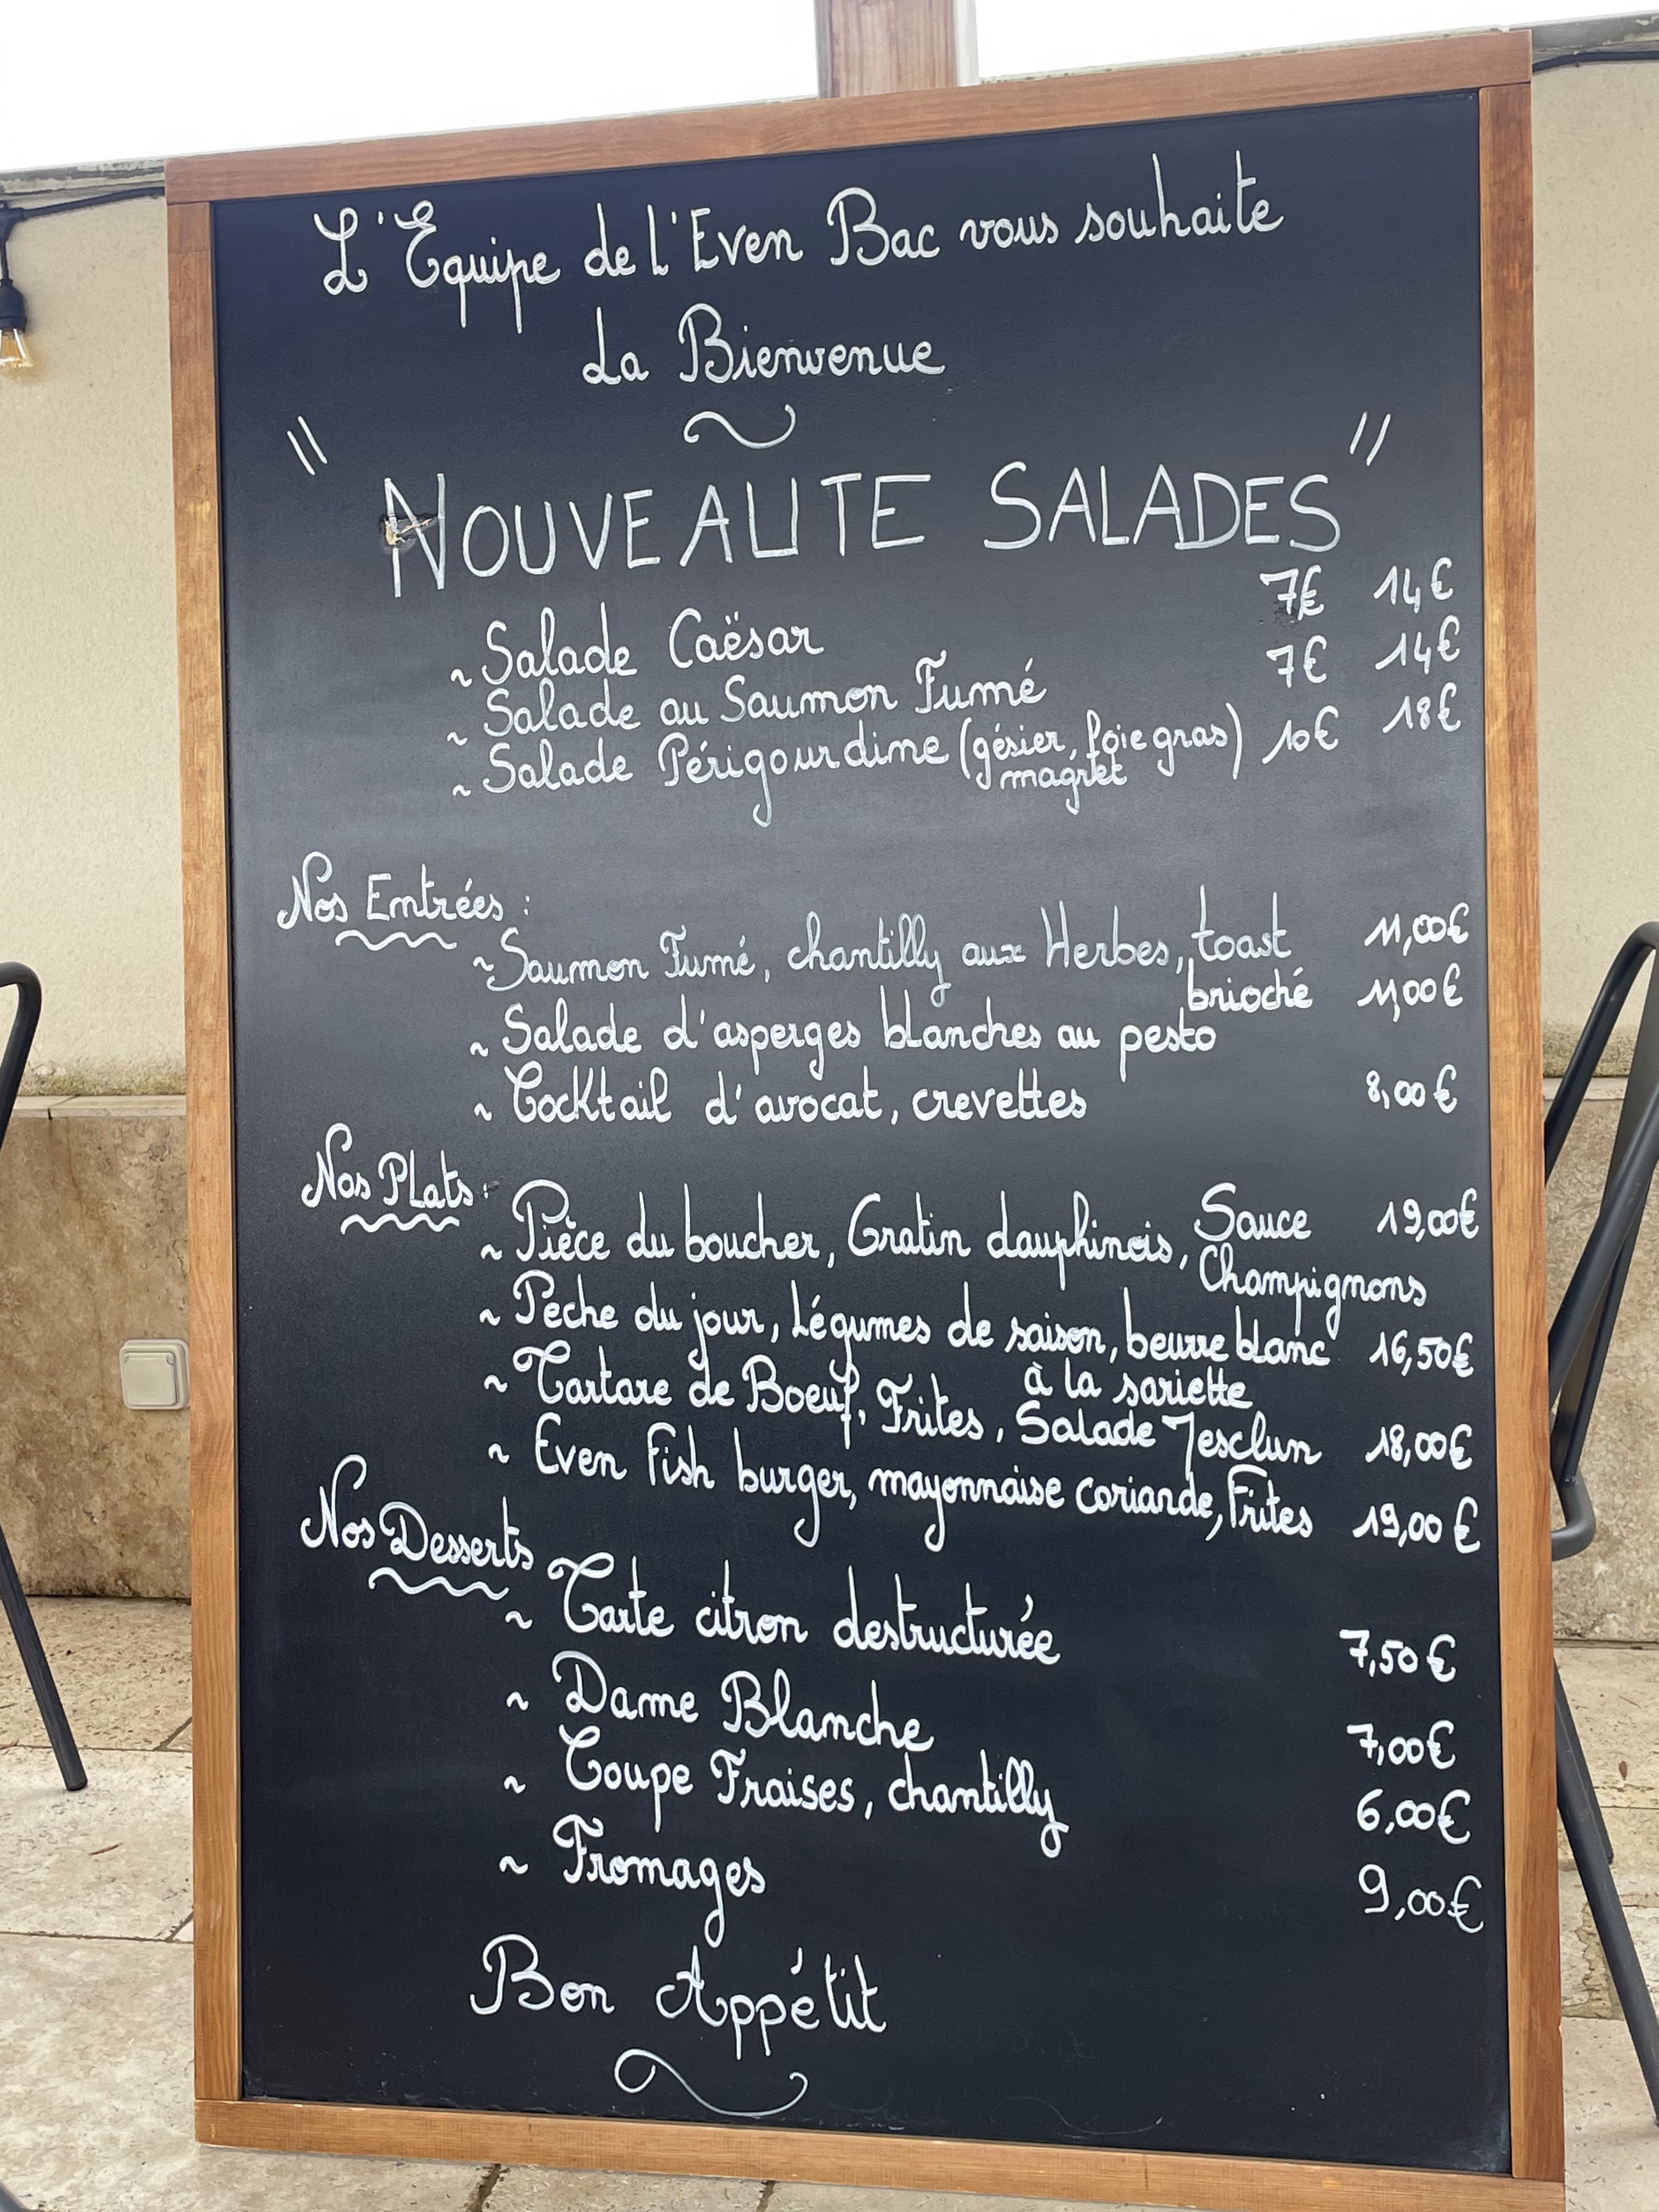 L'Equipe de l'Even Bac vous souhaite
La Bienvenue
~
" NOUVEAUTE SALADES "
~ Salade Caësar 7€ 14€
~ Salade au Saumon Fumé 7€ 14€
~ Salade Périgourdine (gésier, foie gras) 10€ 18€
magret
Nos Entrées :
~ Saumon Fumé, chantilly aux Herbes, toast 11,00€
brioché
~ Salade d'asperges blanches au pesto 11,00€
~ Cocktail d'avocat, crevettes 8,00€
Nos Plats :
~ Pièce du boucher, Gratin dauphinois, Sauce 19,00€
Champignons
~ Peche du jour, Légumes de saison, beurre blanc 16,50€
à la sariette
~ Tartare de Boeuf, Frites, Salade Mesclun 18,00€
~ Even Fish burger, mayonnaise coriande, Frites 19,00€
Nos Desserts
~ Tarte citron destructurée 7,50€
~ Dame Blanche 7,00€
~ Coupe Fraises, chantilly 6,00€
~ Fromages 9,00€
Bon Appétit